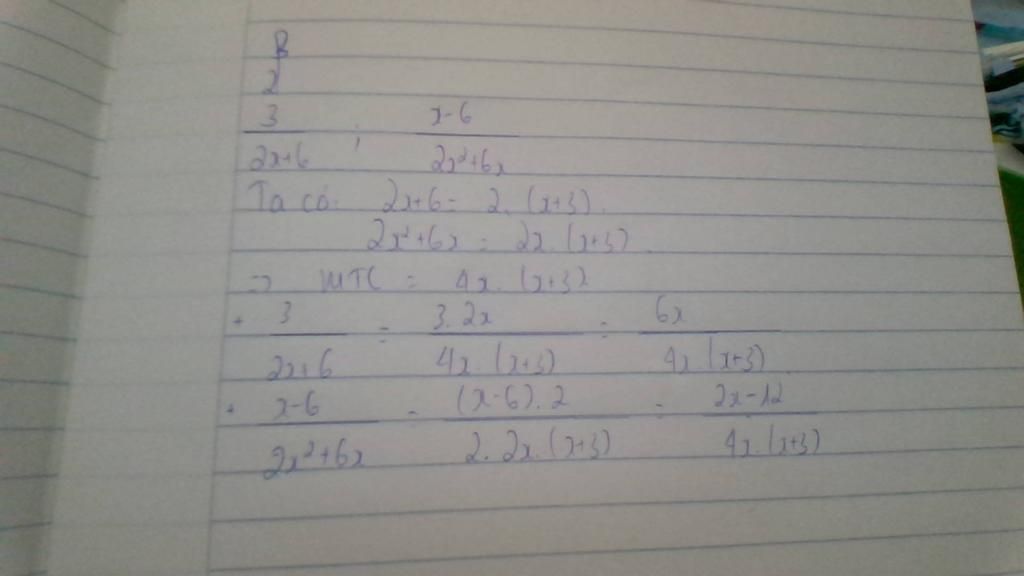 B
2
3/(2x+6) ; (x-6)/(2x²+6x)
Ta có: 2x+6 = 2.(x+3).
2x²+6x = 2x.(x+3).
=> MTC = 4x.(x+3)
+ 3/(2x+6) = 3.2x/4x.(x+3) = 6x/4x.(x+3)
+ (x-6)/(2x²+6x) = (x-6).2/2.2x.(x+3) = (2x-12)/4x.(x+3)